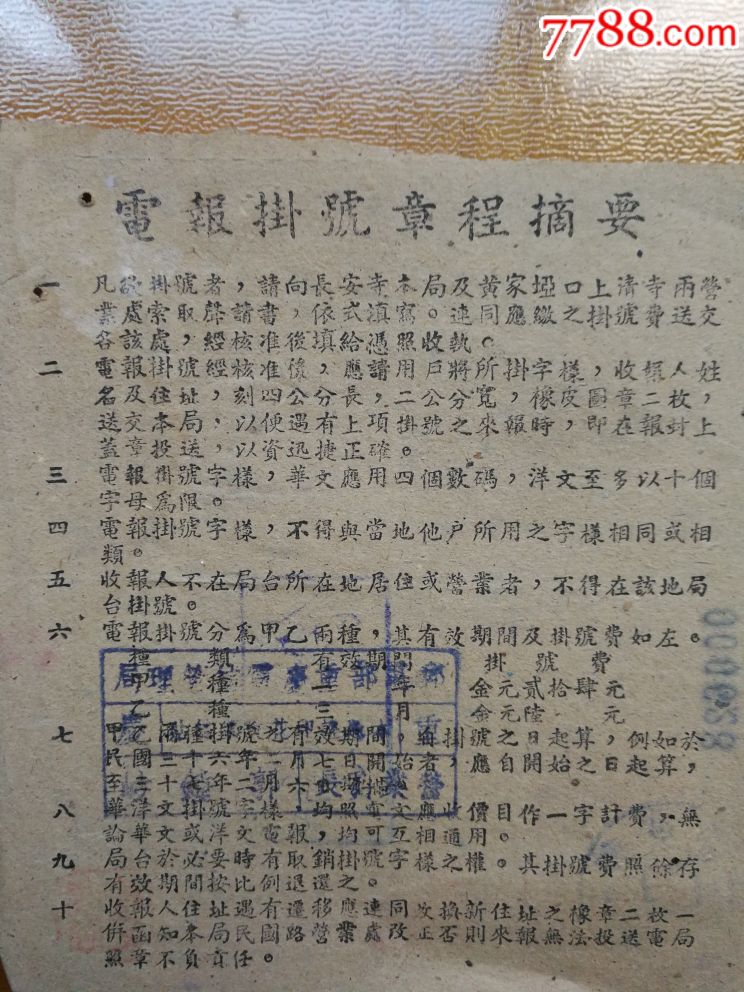 7788.com
電報掛號章程摘要
一 凡欲掛號者，請向長安寺本局及黃家埡口上清寺兩營
業處索取聲請書，依式填寫。連同應繳之掛號費送交
各該處，經核准後填給憑照收執。
二 電報掛號經核准後，應請用戶將所掛字樣，收報人姓
名及住址，刻四公分長，二公分寬，橡皮圖章二枚，
送交本局，以便遇有上項掛號之來報時，即在報封上
蓋章投送，以資迅捷正確。
三 電報掛號字樣，華文應用四個數碼，洋文至多以十個
字母為限。
四 電報掛號字樣，不得與當地他戶所用之字樣相同或相
類。
五 收報人不在局台所在地居住或營業者，不得在該地局
台掛號。
六 電報掛號分為甲乙兩種，其有效期間及掛號費如左。
種類 有效期間 掛號費
甲種 一年 金元貳拾肆元
乙種 三月 金元陸元
七 甲乙兩種掛號有效期間，自掛號之日起算，例如於
民國三十六年 應自開始之日起算，
至
八 華洋文掛號字樣 均照 文應收價目作一字計費，無
論華文或洋文電報，均可互相通用。
九 局台於必要時有取銷掛號字樣之權。其掛號費照餘存
有效期間按比例退還之。
十 收報人住址遇有遷移應連同改換新住址之橡章二枚一
併函知本局國民路營業處改正否則來報無法投送電局
照章不負責任。
000638